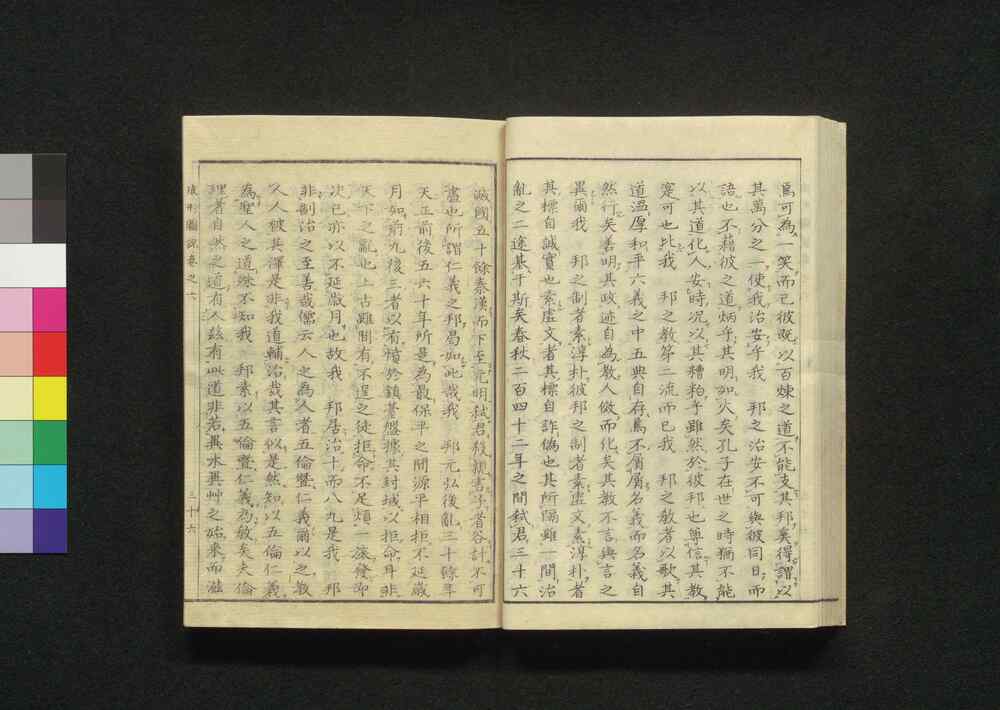 焉可為一笑而已彼既以百煉之道不能支其邦奚得謂以
其萬分之一使我治安乎我　邦之治安不可與彼同日而
語也不藉彼之道炳乎其明如火矣孔子在世之時猶不能
以其道化人安時況以其糟粕乎雖然於彼邦也尊信其教
寔可也比我　邦之教第二流而已我　邦之教者以歌其
道溫厚和平六義之中五典自存焉不屑屑名義而名義自
然行矣善明其政迹自為教人倣而化矣其教不言與言之
異爾我　邦之制者素淳朴彼邦之制者素虛文素淳朴者
其標自誠實也素虛文者其標自詐偽也其所隔雖一間治
亂之二途基于斯矣春秋二百四十二年之間弒君三十六
滅國五十餘秦漢而下至元明弒君殺親書等者合計不可
盡也所謂仁義之邦曷如此哉我　邦元弘後亂三十餘年
天正前後五六十年所是為最保平之間源平相拒不延歲
月如前九後三者以有積於鎮蒼盤據其封域以拒命耳非
天下之亂也上古雖間有不逞之徒拒命不足煩一旅發而
次已亦以不延歲月也故我　邦居治十而八九是我　邦
非制治之至善哉儒云人之為人者五倫豐仁義爾以之教
人人被其澤是非我道輔治哉其言似是然知以五倫仁義
為聖人之道殊不知我　邦素以五倫豐仁義為教矣夫倫
理者自然之道有人茲有此道非若異水異艸之始來而滋
三十六